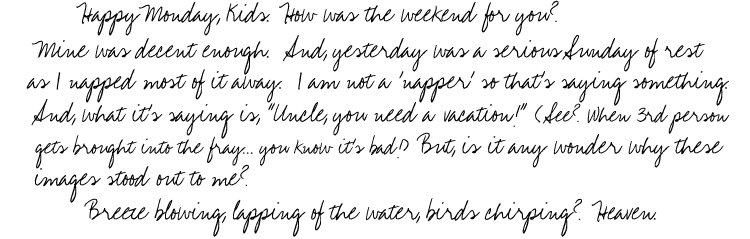 Happy Monday, Kids. How was the weekend for you?
Mine was decent enough. And, yesterday was a serious Sunday of rest
as I napped most of it away. I am not a 'napper' so that's saying something.
And, what it's saying is, "Uncle, you need a vacation!" (See? When 3rd person
gets brought into the fray... you know it's bad!) But, is it any wonder why these
images stood out to me?
Breeze blowing, lapping of the water, birds chirping? Heaven.